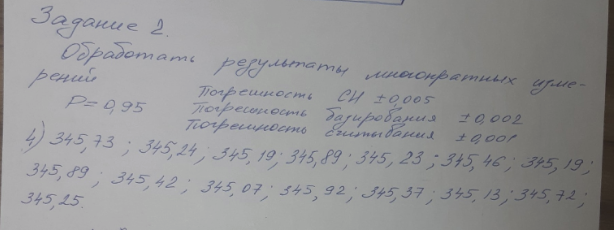 Задание 2.
Обработать результаты многократных изме-
рений Погрешность СИ ±0,005
P=0,95 Погрешность базирования ±0,002
Погрешность считывания ±0,001
4) 345,73; 345,24; 345,19; 345,89; 345,23; 345,46; 345,19;
345,89; 345,42; 345,07; 345,92; 345,37; 345,13; 345,72;
345,25.